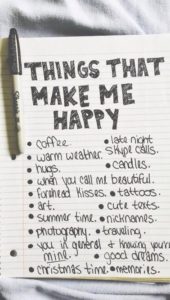 THINGS THAT
MAKE ME
HAPPY
• coffee.
• late night skype calls.
• warm weather.
• hugs.
• candles.
• when you call me beautiful.
• forehead kisses.
• tattoos.
• art.
• cute texts.
• summer time.
• nicknames.
• photography.
• traveling.
• you in general & knowing you're mine.
• good dreams.
• christmas time.
• memories.